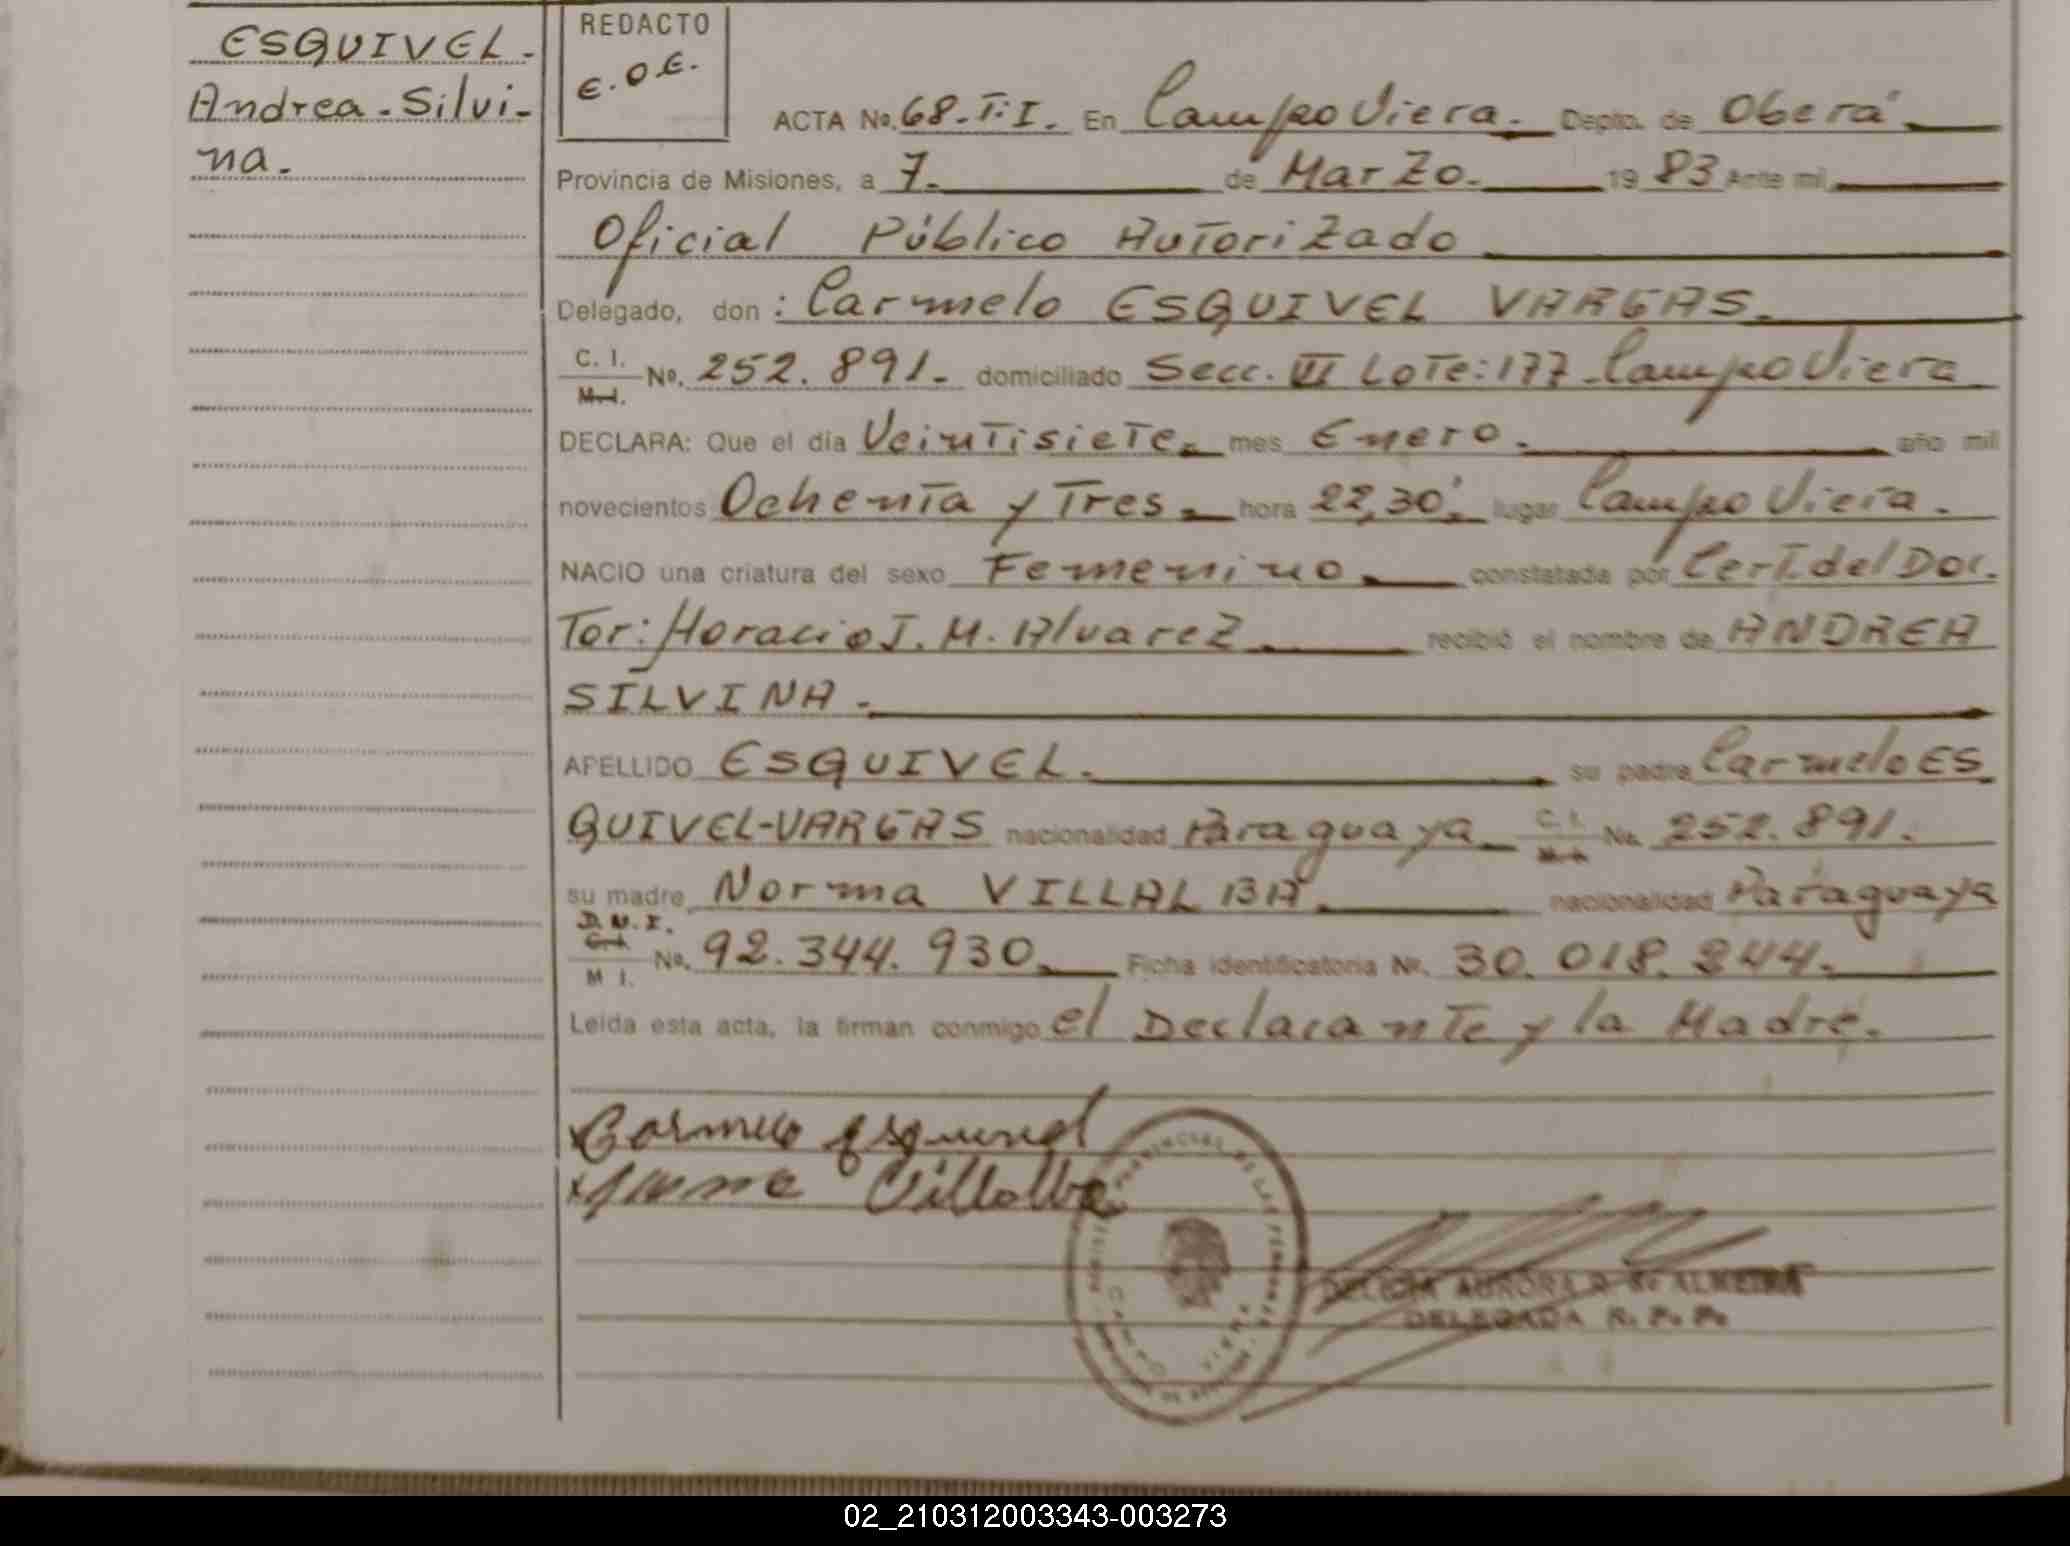 ESQUIVEL.
Andrea-Silvi-
na.
REDACTO
E.O.E.
ACTA No. 68-T:I. En Campo Viera. Depto. de Oberá
Provincia de Misiones, a 7. de Marzo. 19 83 Ante mi,
Oficial Público Autorizado
Delegado, don: Carmelo ESQUIVEL VARGAS.
C. I.
M. I.
No. 252.891. domiciliado Secc. VI Lote: 177-Campo Viera
DECLARA: Que el día Veintisiete mes Enero. año mil
novecientos Ochenta y Tres hora 22,30'. lugar Campo Viera.
NACIO una criatura del sexo Femenino constatada por Cert. del Doc.
Tor: Horacio J. M. Alvarez recibió el nombre de ANDREA
SILVINA.
APELLIDO ESQUIVEL. su padre Carmelo ES
QUIVEL-VARGAS nacionalidad Paraguaya C. I. No. 252.891.
su madre Norma VILLALBA. nacionalidad Paraguaya
D.N.I.
M I.
No. 92.344.930. Ficha identificatoria Nº. 30.018.244.
Leída esta acta, la firman conmigo el Declarante y la Madre.
x Carmelo Esquivel
x Villalba
AURORA R. de ALMEIRA
DELEGADA R. P. P.
02_210312003343-003273